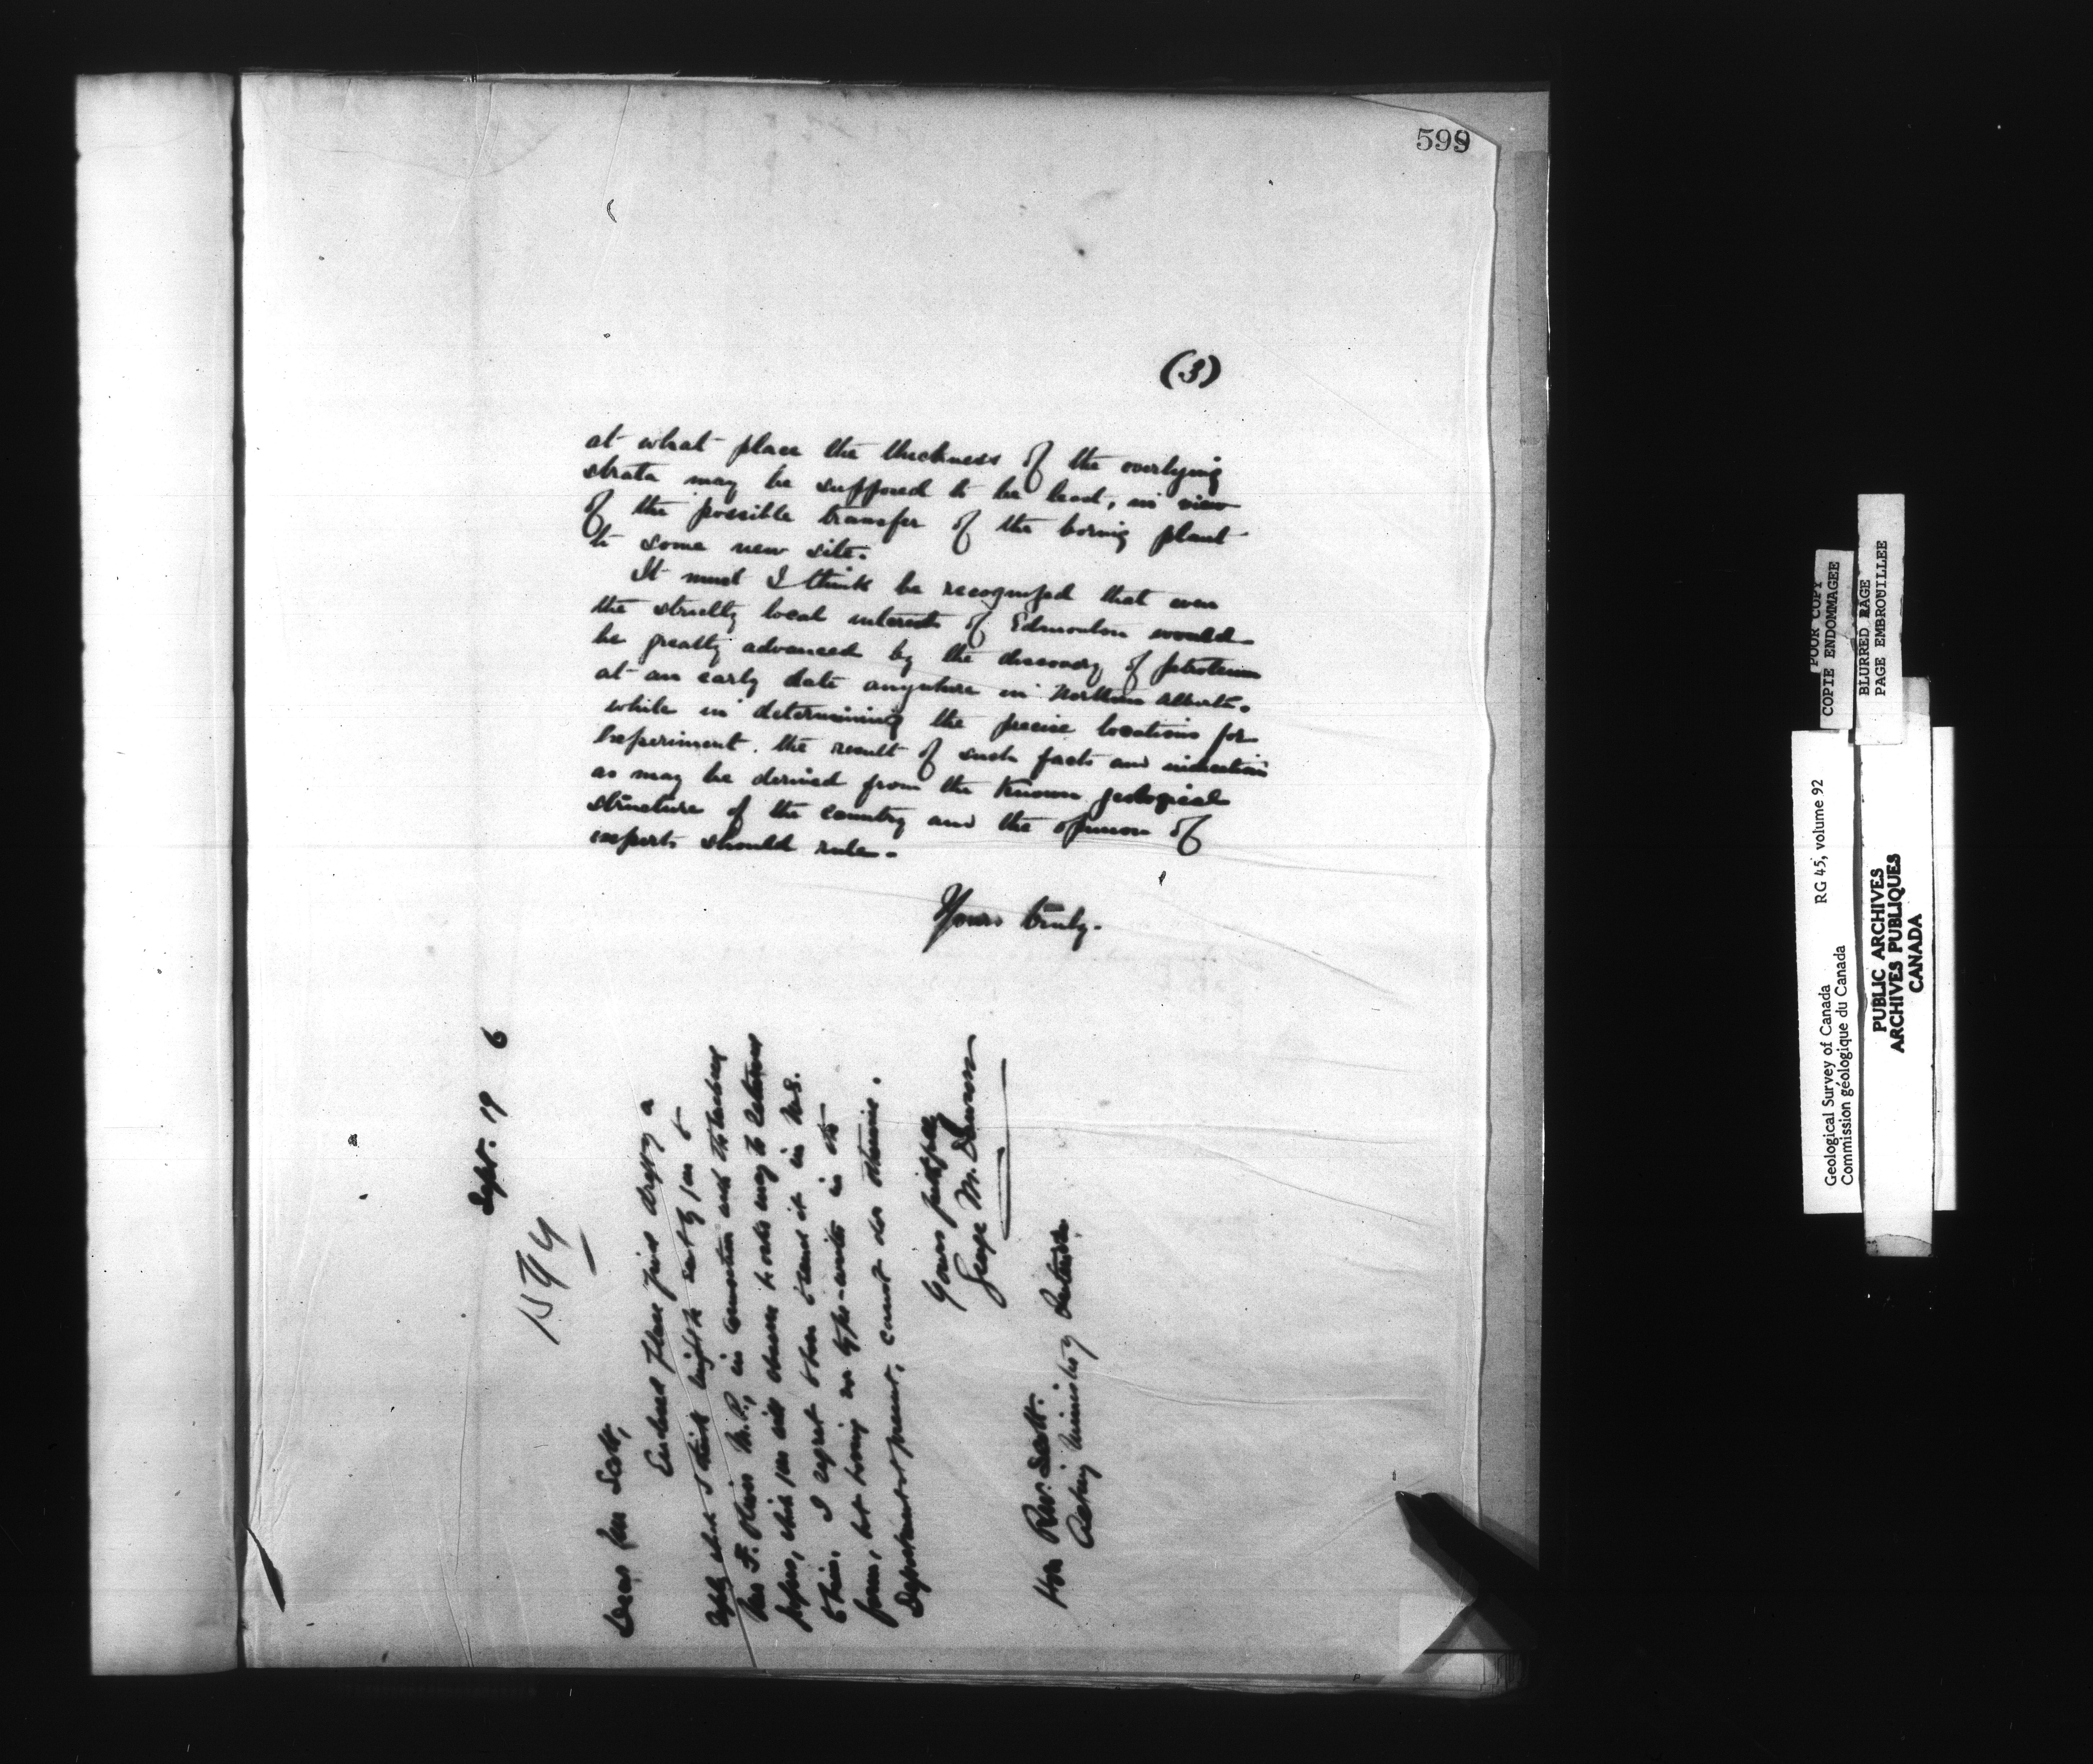 599
(3)
at what place the thickness of the overlying
strata may be supposed to be least, in view
of the possible transfer of the boring plant
to some new site.
It must I think be recognized that even
the strictly local interests of Edmonton would
be greatly advanced by the discovery of petroleum
at an early date anywhere in Northern Alberta.
while in determining the precise locations for
experiment. the result of such facts and indications
as may be derived from the known geological
structure of the country and the opinion of
experts should rule.
Yours truly.
Sept. 19 6
1594
Dear Mr Scott,
Enclosed please find draft of a
reply which I think might be sent by you to
Mr F. Oliver M.P., in connection with the various
papers, which you will observe he asks may be returned
to him. I regret to have to send it in M.S.
form, but having no type-writer in the
Department at present, cannot do otherwise.
Yours faithfully
George M. Dawson
Hon R.W. Scott.
Acting Minister of Interior
POOR COPY
COPIE ENDOMMAGEE
BLURRED PAGE
PAGE EMBROUILLEE
RG 45, volume 92
Geological Survey of Canada
Commission géologique du Canada
PUBLIC ARCHIVES
ARCHIVES PUBLIQUES
CANADA